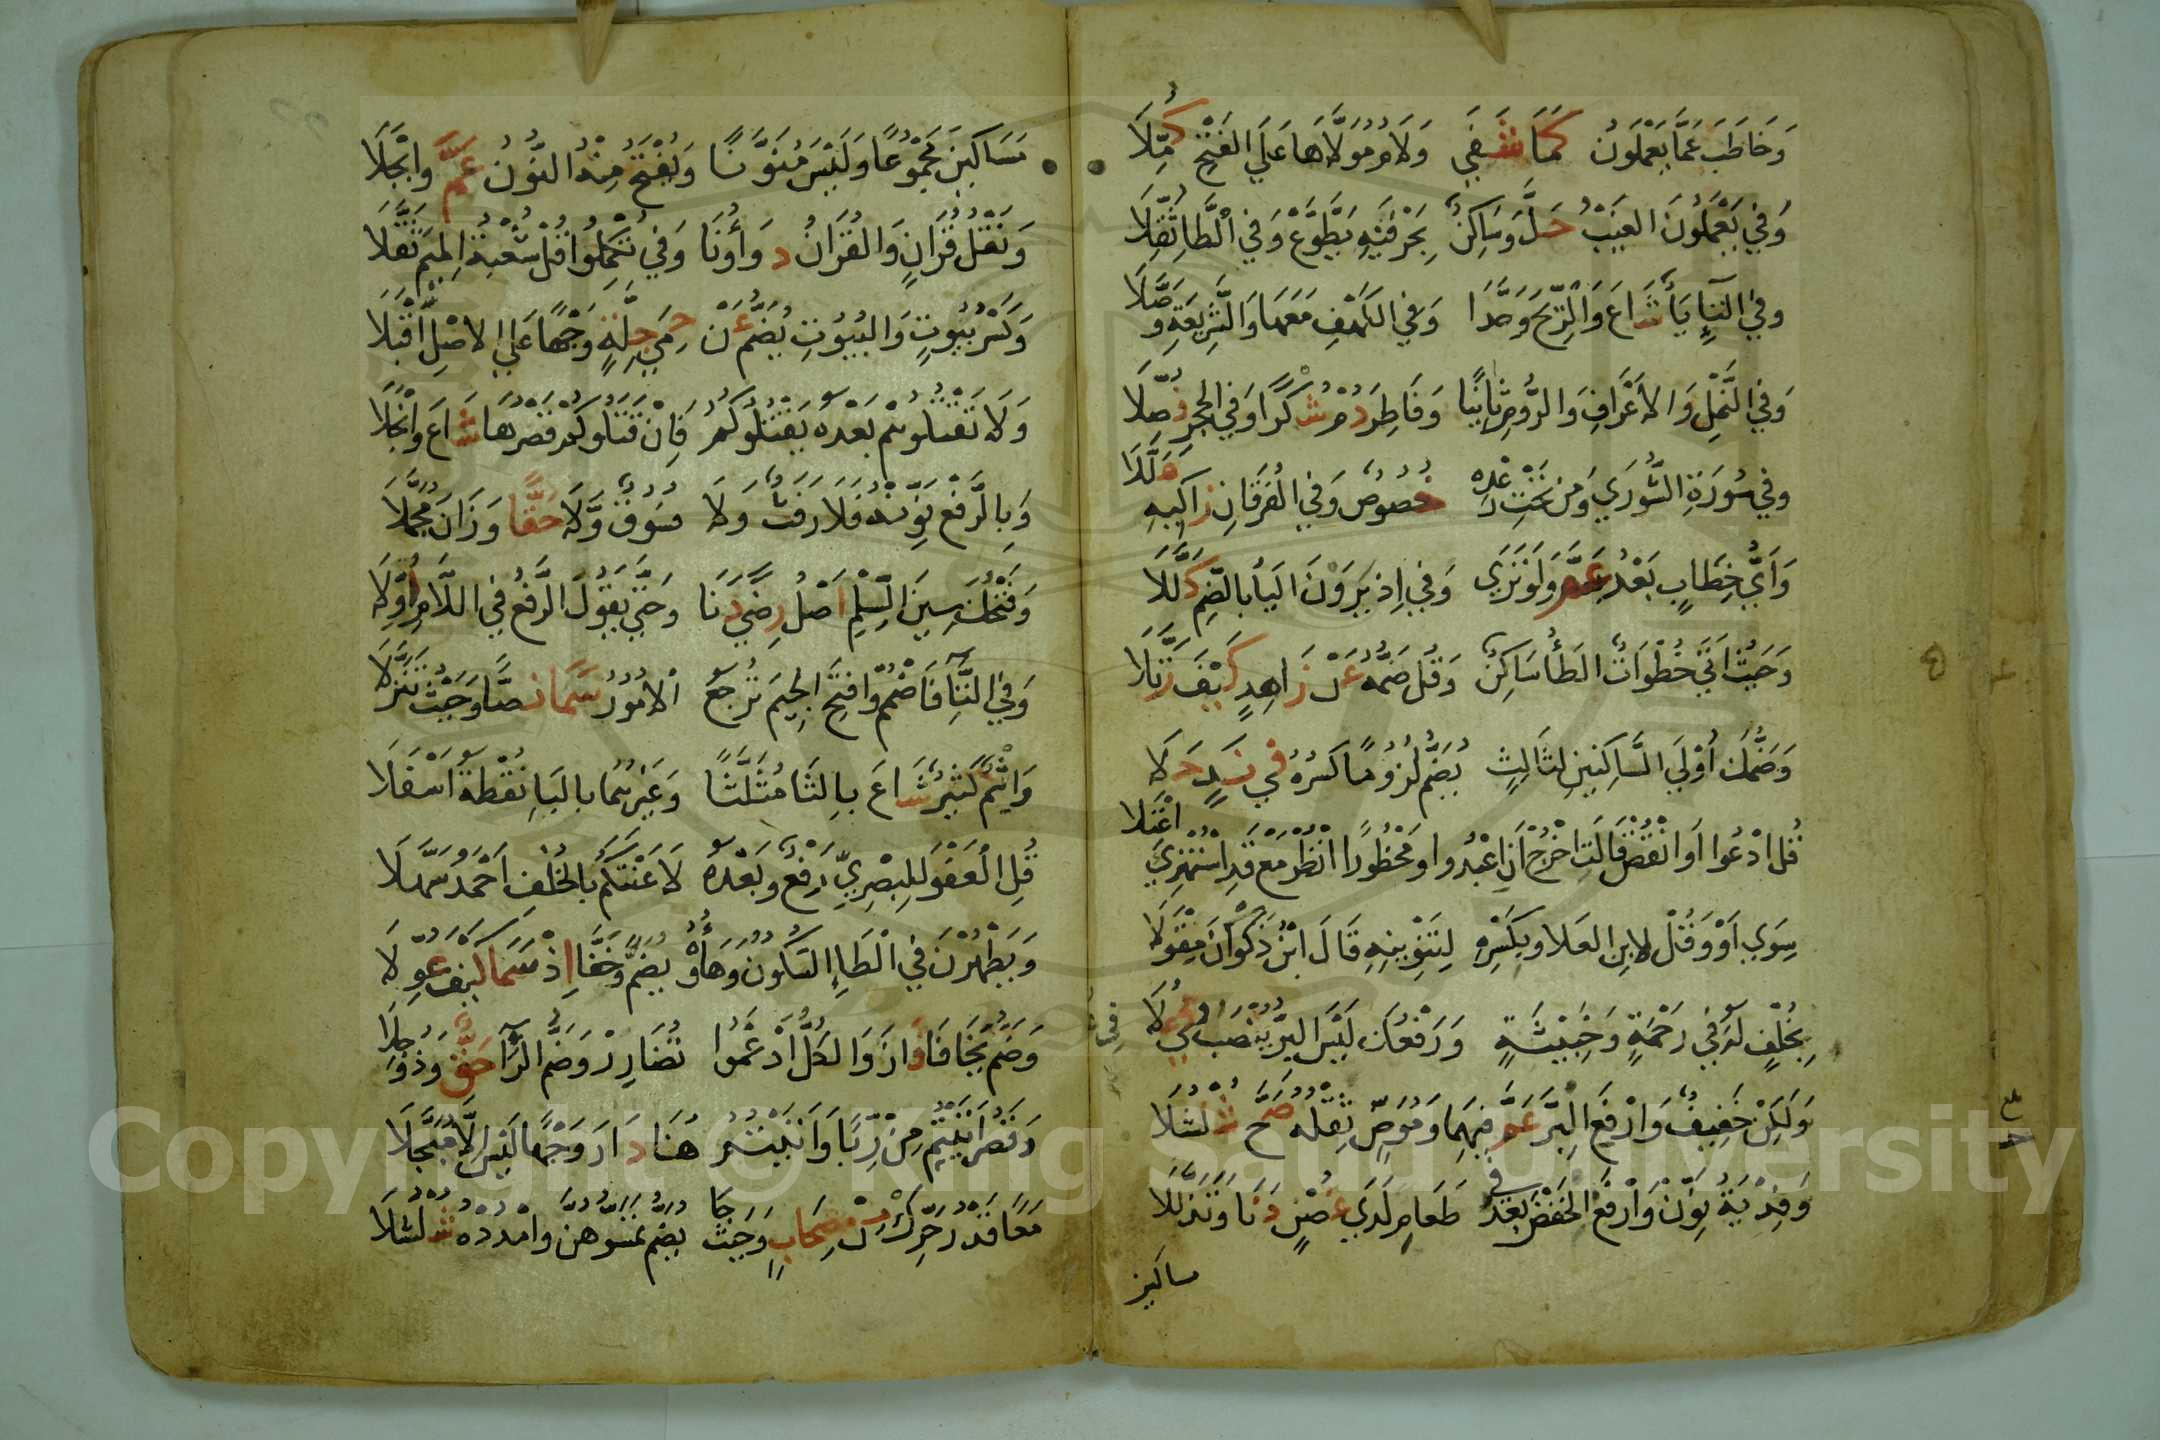 وَخَاطَبَ عَمَّا يَعْمَلُونَ كَمَا شَفَى وَلَامُ مُوَلَّاهَا عَلَى الفَتْحِ كُمِّلَا
وَفِي يَعْمَلُونَ الغَيْبُ حَلَّ وَسَاكِنٌ بِحَرْفَيْهِ يَطَّوَّعْ وَفِي الطَّا ثُقِّلَا
وَفِي التَّاءِ يَاءٌ شَاعَ وَالرِّيحَ وَحَّدَا وَفِي الكَهْفِ مَعْهَا وَالشَّرِيعَةِ وَصَّلَا
وَفِي النَّمْلِ وَالأَعْرَافِ وَالرُّومِ ثَانِيًا وَفَاطِرِ دُمْ شُكْرًا وَفِي الحِجْرِ فُصِّلَا
وَفِي سُورَةِ الشُّورَى وَمِنْ تَحْتِ رَعْدِهِ خُصُوصٌ وَفِي الفُرْقَانِ زَاكِيهِ هَلَّلَا
وَأَيُّ خِطَابٍ بَعْدُ عَمَّ وَلَوْ تَرَى وَفِي إِذْ يَرَوْنَ اليَا بِالضَّمِّ كُلِّلَا
وَحَيْثُ أَتَى خُطْوَاتٌ الطَّاءُ سَاكِنٌ وَقُلْ ضَمُّهُ عَنْ زَاهِدٍ كَيْفَ رَتَّلَا
وَضَمُّكَ أُولَى السَّاكِنَيْنِ لِثَالِثٍ يُضَمُّ لُزُومًا كَسْرُهُ فِي نَدٍ حَلَا
قُلِ ادْعُوا أَوِ انْقُصْ قَالَتِ اخْرُجْ أَنِ اعْبُدُوا وَمَحْظُورًا انْظُرْ مَعْ قَدِ اسْتُهْزِئَ اعْتَلَا
سِوَى أَوْ وَقُلْ لِابْنِ العَلَا وَبِكَسْرِهِ لِتَنْوِينِهِ قَالَ ابْنُ ذَكْوَانَ مِقْوَلَا
بِخُلْفٍ لَهُ فِي رَحْمَةٍ وَخَبِيثَةٍ وَرَفْعُكَ لَيْسَ البِرُّ يُنْصَبُ فِي عُلَا
وَلَكِنْ خَفِيفٌ وَارْفَعِ البِرَّ عَمَّ فِيهِمَا وَمُوَصٍّ ثِقْلُهُ صَحَّ شُلْشُلَا
وَفِدْيَةُ نَوِّنْ وَارْفَعِ الخَفْضَ بَعْدُ فِي طَعَامِ لَدَى غُصْنٍ دَنَا وَتَذَلَّلَا
مساكين
مَسَاكِينَ مَجْمُوعًا وَلَيْسَ مُنَوَّنًا وَيُفْتَحُ مِنْهُ النُّونُ عَمَّ وَانْجَلَا
وَنَقْلُ قُرَانٍ وَالقُرَانُ دَوَاؤُنَا وَفِي تُكْمِلُوا قُلْ شُعْبَةُ المِيمَ ثَقَّلَا
وَكَسْرُ بُيُوتٍ وَالبُيُوتِ يُضَمُّ عَنْ حِمَى جِلَّةٍ وَجْهًا عَلَى الأَصْلِ أَقْبَلَا
وَلَا تَقْتُلُوهُمْ بَعْدَهُ يَقْتُلُوكُمُ فَإِنْ قَتَلُوكُمْ قَصْرُهَا شَاعَ وَانْجَلَا
وَبِالرَّفْعِ نَوِّنْهُ فَلَا رَفَثٌ وَلَا فُسُوقٌ وَلَا حَقًّا وَزَانَ مُجَمِّلَا
وَفَتْحُكَ سِينَ السِّلْمِ أَصْلُ رِضًى دَنَا وَحَتَّى يَقُولَ الرَّفْعُ فِي اللَّامِ أُوِّلَا
وَفِي التَّاءِ فَاضْمُمْ وَافْتَحِ الجِيمَ تُرْجَعُ الأُمُورُ سَمَا نَصًّا وَحَيْثُ تَنَزَّلَا
وَإِثْمٌ كَثِيرٌ شَاعَ بِالثَّا مُثَلَّثًا وَغَيْرُهُمَا بِاليَاءِ نُقْطَةٌ أَسْفَلَا
قُلِ العَفْوَ لِلبِصْرِيِّ رَفْعٌ وَبَعْدَهُ لَأَعْنَتَكُمْ بِالخُلْفِ أَحْمَدُ سَهَّلَا
وَيَطْهُرْنَ فِي الطَّاءِ السُّكُونُ وَهَاؤُهُ يُضَمُّ وَخَفَّا إِذْ سَمَا كَيْفَ عُوِّلَا
وَضَمُّ يَخَافَا فَازَ وَالكُلُّ أَدْغَمُوا تُضَارِرْ وَضَمَّ الرَّاءَ حَقٌّ وَذُو جَلَا
وَقَصْرُ أَتَيْتُمْ مِنْ رِبًا وَأَتَيْتُمُ هُنَا دَارَ وَجْهًا لَيْسَ إِلَّا مُبَجَّلَا
مَعًا قَدْرُ حَرِّكْ مِنْ صِحَابٍ وَحَيْثُ جَا يُضَمُّ تَمَسُّوهُنَّ وَامْدُدْهُ شُلْشُلَا
Copyright © King Saud University